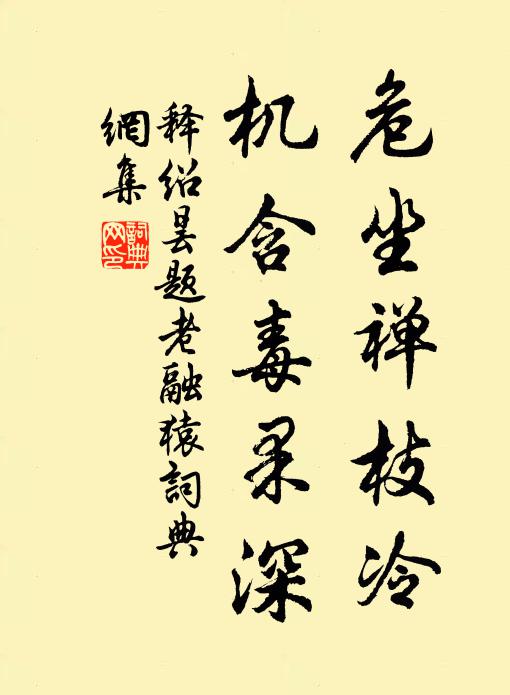 危坐禅枝冷
机含毒果深
释绍昙题老融猿詞典
網集
詞典
网印